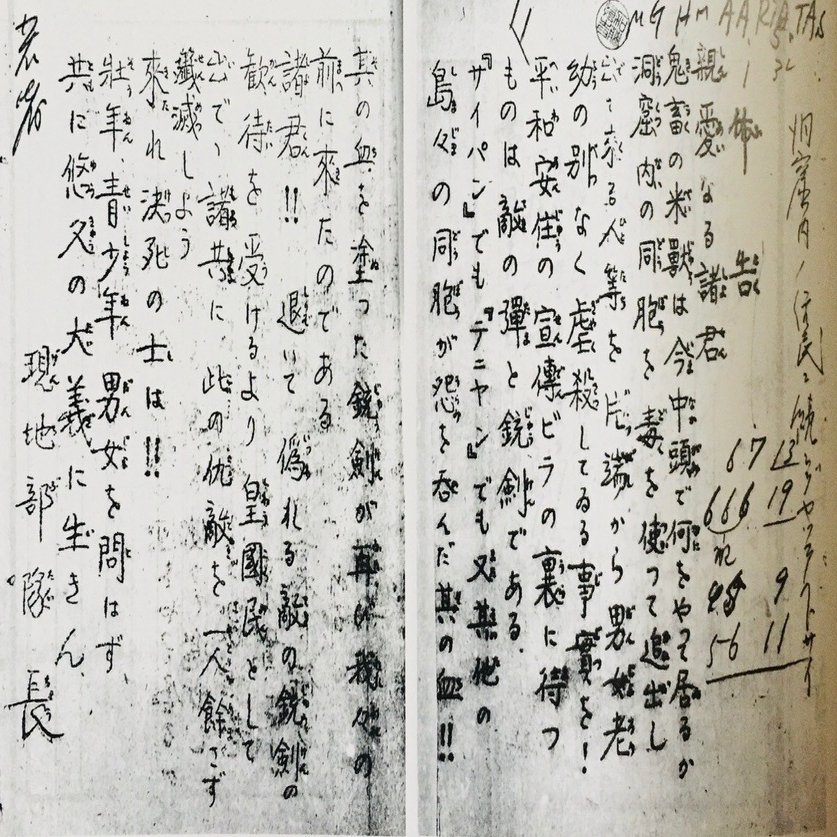 布告
親愛なる諸君
鬼畜の米獸は今中頭で何をやつて居るか
洞窟内の同胞を毒を使つて追出し
出て來る人等を片端から男女老
幼の別なく虐殺してゐる事實を!
平和安住の宣傳ビラの裏に待つ
ものは敵の彈と銃剣である.
『サイパン』でも『テニヤン』でも又其他の
島々の同胞が怨を呑んだ其の血!!
其の血を塗つた銃劍が再び我々の
前に來たのである
諸君!! 退いて偽れる敵の銃剣の
歓待を受けるより 皇國民として
出でゝ諸共に此の仇敵を一人餘さず
殲滅しよう
來れ決死の士は!!
壮年、青少年男女を問はず、
共に悠久の大義に生きん
現地部隊長